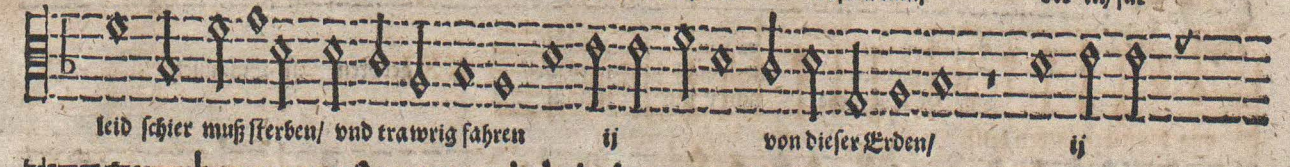 leid schier muß sterben/ vnd trawrig fahren ij von dieser Erden/ ij